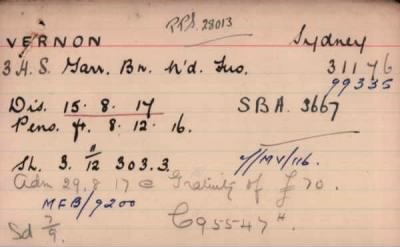 P.P.S. 28013
VERNON Sydney
3 H.S. Garr. Bn. N'd. Fus. 31176
99335
Dis. 15. 8. 17 SBA. 3667
Pens. fr. 8. 12. 16.
Sh. 3. 11/12 303.3. //MV/116.
Adm 29.8.17 @ Gratuity of £70.
MFB/9200
Sd 7/9. C95547 H.